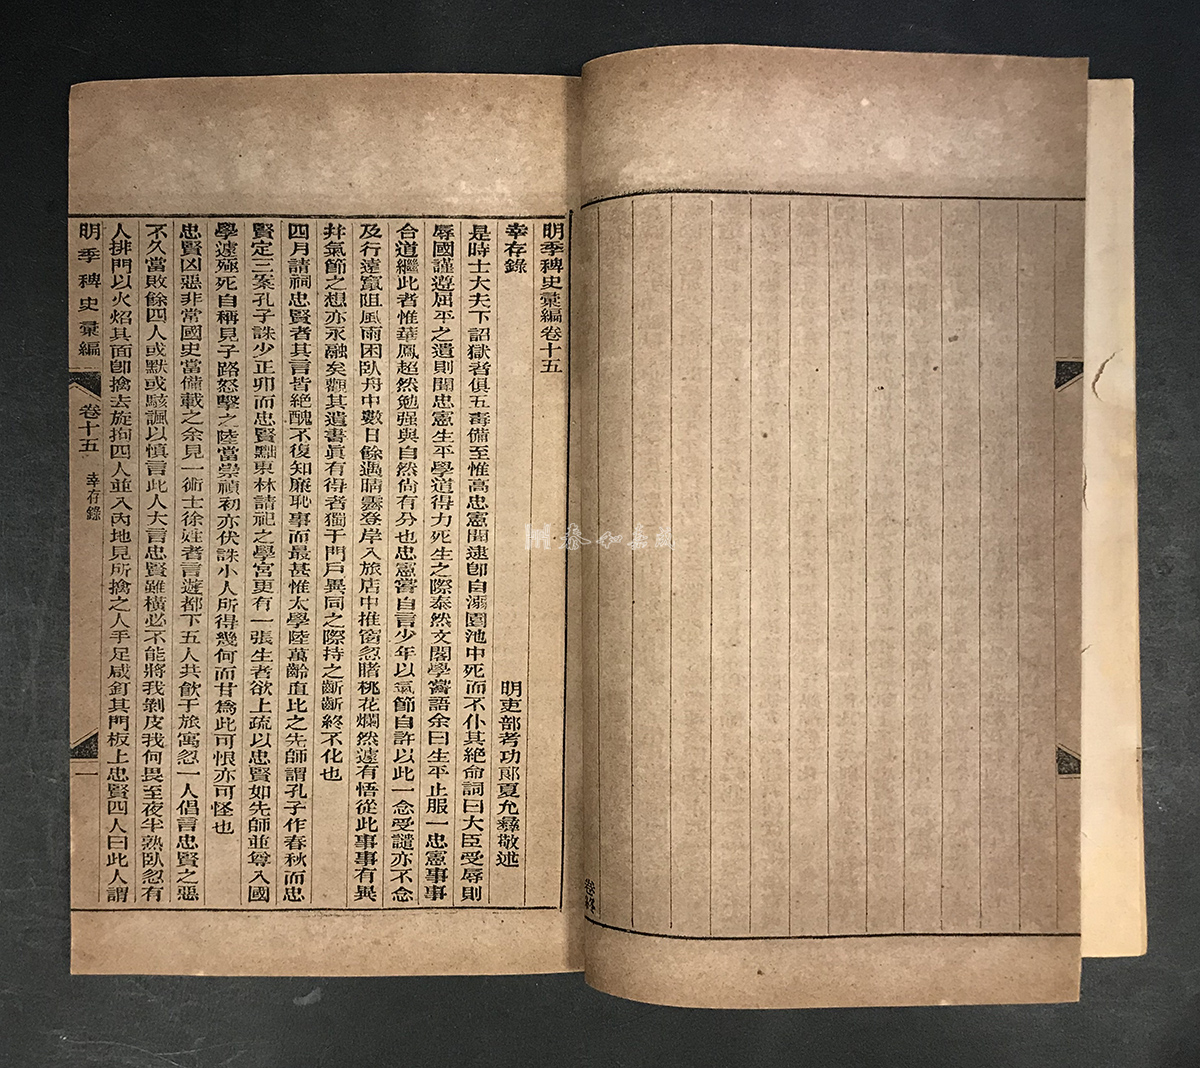 卷終
明季稗史彙編卷十五
幸存錄
明吏部考功郞夏允彝敬述
是時士大夫下詔獄者俱五毒備至惟高忠憲聞逮卽自溺園池中死而不仆其絶命詞曰大臣受辱則
辱國謹遵屈平之遺則聞忠憲生平學道得力死生之際泰然文閣學嘗語余曰生平止服一忠憲事事
合道繼此者惟華鳳超然勉强與自然尙有分也忠憲嘗自言少年以氣節自許以此一念受譴亦不念
及行遠竄阻風雨困臥舟中數日餘遇晴霽登岸入旅店中推窗忽睹桃花爛然遽有悟從此事事有異
幷氣節之想亦永融矣觀其遺書眞有得者獨于門戶異同之際持之齗齗終不化也
四月請祠忠賢者其言皆絶醜不復知廉恥事而最甚惟太學陸萬齡直比之先師謂孔子作春秋而忠
賢定三案孔子誅少正卯而忠賢黜東林請祀之學宮更有一張生者欲上疏以忠賢如先師並尊入國
學遽殛死自稱見子路怒擊之陸當崇禎初亦伏誅小人所得幾何而甘爲此可恨亦可怪也
忠賢凶惡非常國史當備載之余見一術士徐姓者言遊都下五人共飮于旅寓忽一人倡言忠賢之惡
不久當敗餘四人或默或駭諷以愼言此人大言忠賢雖橫必不能將我剝皮我何畏至夜半熟臥忽有
人排門以火焰其面卽擒去旋拘四人並入內地見所擒之人手足咸釘其門板上忠賢四人曰此人謂
明季稗史彙編
卷十五
幸存錄
一
泰和嘉成